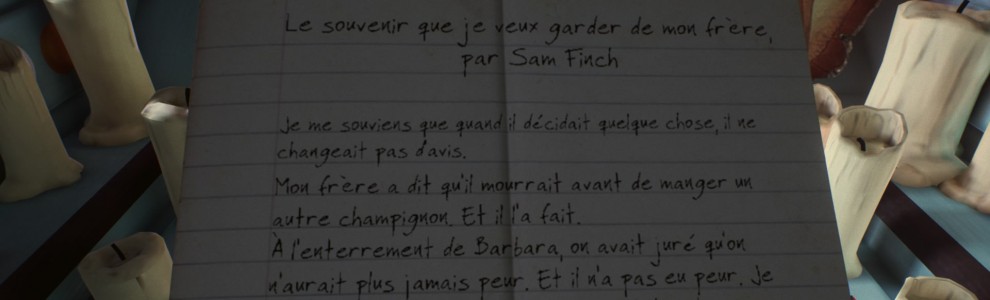 Le souvenir que je veux garder de mon frère,
par Sam Finch
Je me souviens que quand il décidait quelque chose, il ne
changeait pas d'avis.
Mon frère a dit qu'il mourrait avant de manger un
autre champignon. Et il l'a fait.
À l'enterrement de Barbara, on avait juré qu'on
n'aurait plus jamais peur. Et il n'a pas eu peur. Je